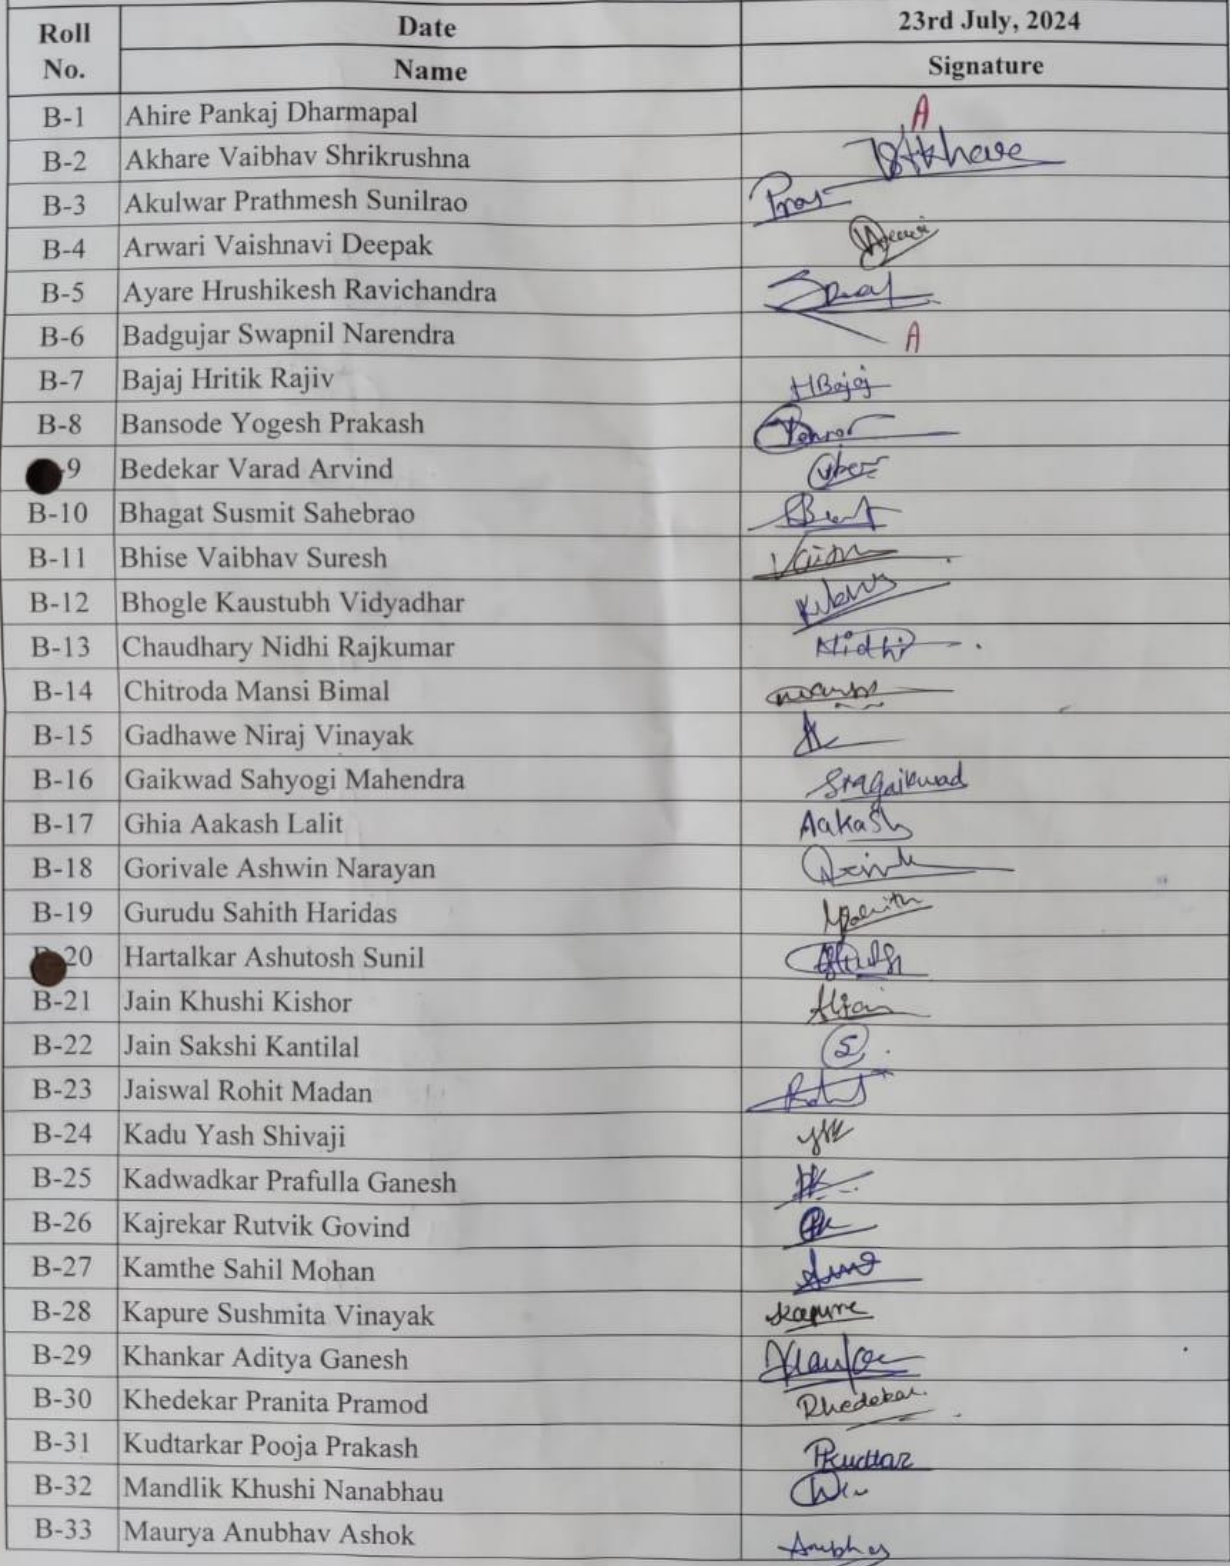 Roll No. Date 23rd July, 2024
Name Signature
B-1 Ahire Pankaj Dharmapal A
B-2 Akhare Vaibhav Shrikrushna
B-3 Akulwar Prathmesh Sunilrao
B-4 Arwari Vaishnavi Deepak
B-5 Ayare Hrushikesh Ravichandra
B-6 Badgujar Swapnil Narendra A
B-7 Bajaj Hritik Rajiv HBajaj
B-8 Bansode Yogesh Prakash
9 Bedekar Varad Arvind
B-10 Bhagat Susmit Sahebrao
B-11 Bhise Vaibhav Suresh
B-12 Bhogle Kaustubh Vidyadhar
B-13 Chaudhary Nidhi Rajkumar Nidhi
B-14 Chitroda Mansi Bimal
B-15 Gadhawe Niraj Vinayak
B-16 Gaikwad Sahyogi Mahendra SMGaikwad
B-17 Ghia Aakash Lalit Aakash
B-18 Gorivale Ashwin Narayan
B-19 Gurudu Sahith Haridas
20 Hartalkar Ashutosh Sunil
B-21 Jain Khushi Kishor
B-22 Jain Sakshi Kantilal S
B-23 Jaiswal Rohit Madan
B-24 Kadu Yash Shivaji
B-25 Kadwadkar Prafulla Ganesh
B-26 Kajrekar Rutvik Govind
B-27 Kamthe Sahil Mohan
B-28 Kapure Sushmita Vinayak
B-29 Khankar Aditya Ganesh
B-30 Khedekar Pranita Pramod
B-31 Kudtarkar Pooja Prakash
B-32 Mandlik Khushi Nanabhau
B-33 Maurya Anubhav Ashok